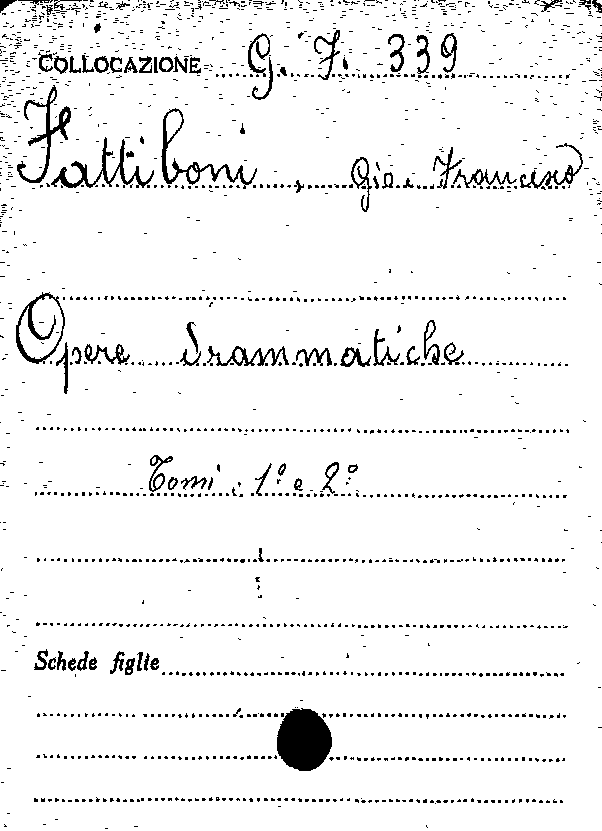 COLLOCAZIONE G. F. 339
Fattiboni, Gio. Francesco
Opere drammatiche
Tomi 1º e 2º
Schede figlie